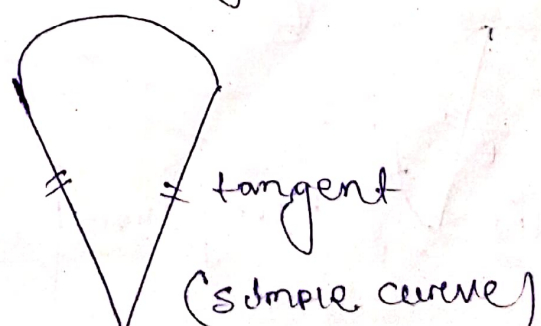 tangent
(simple curve)